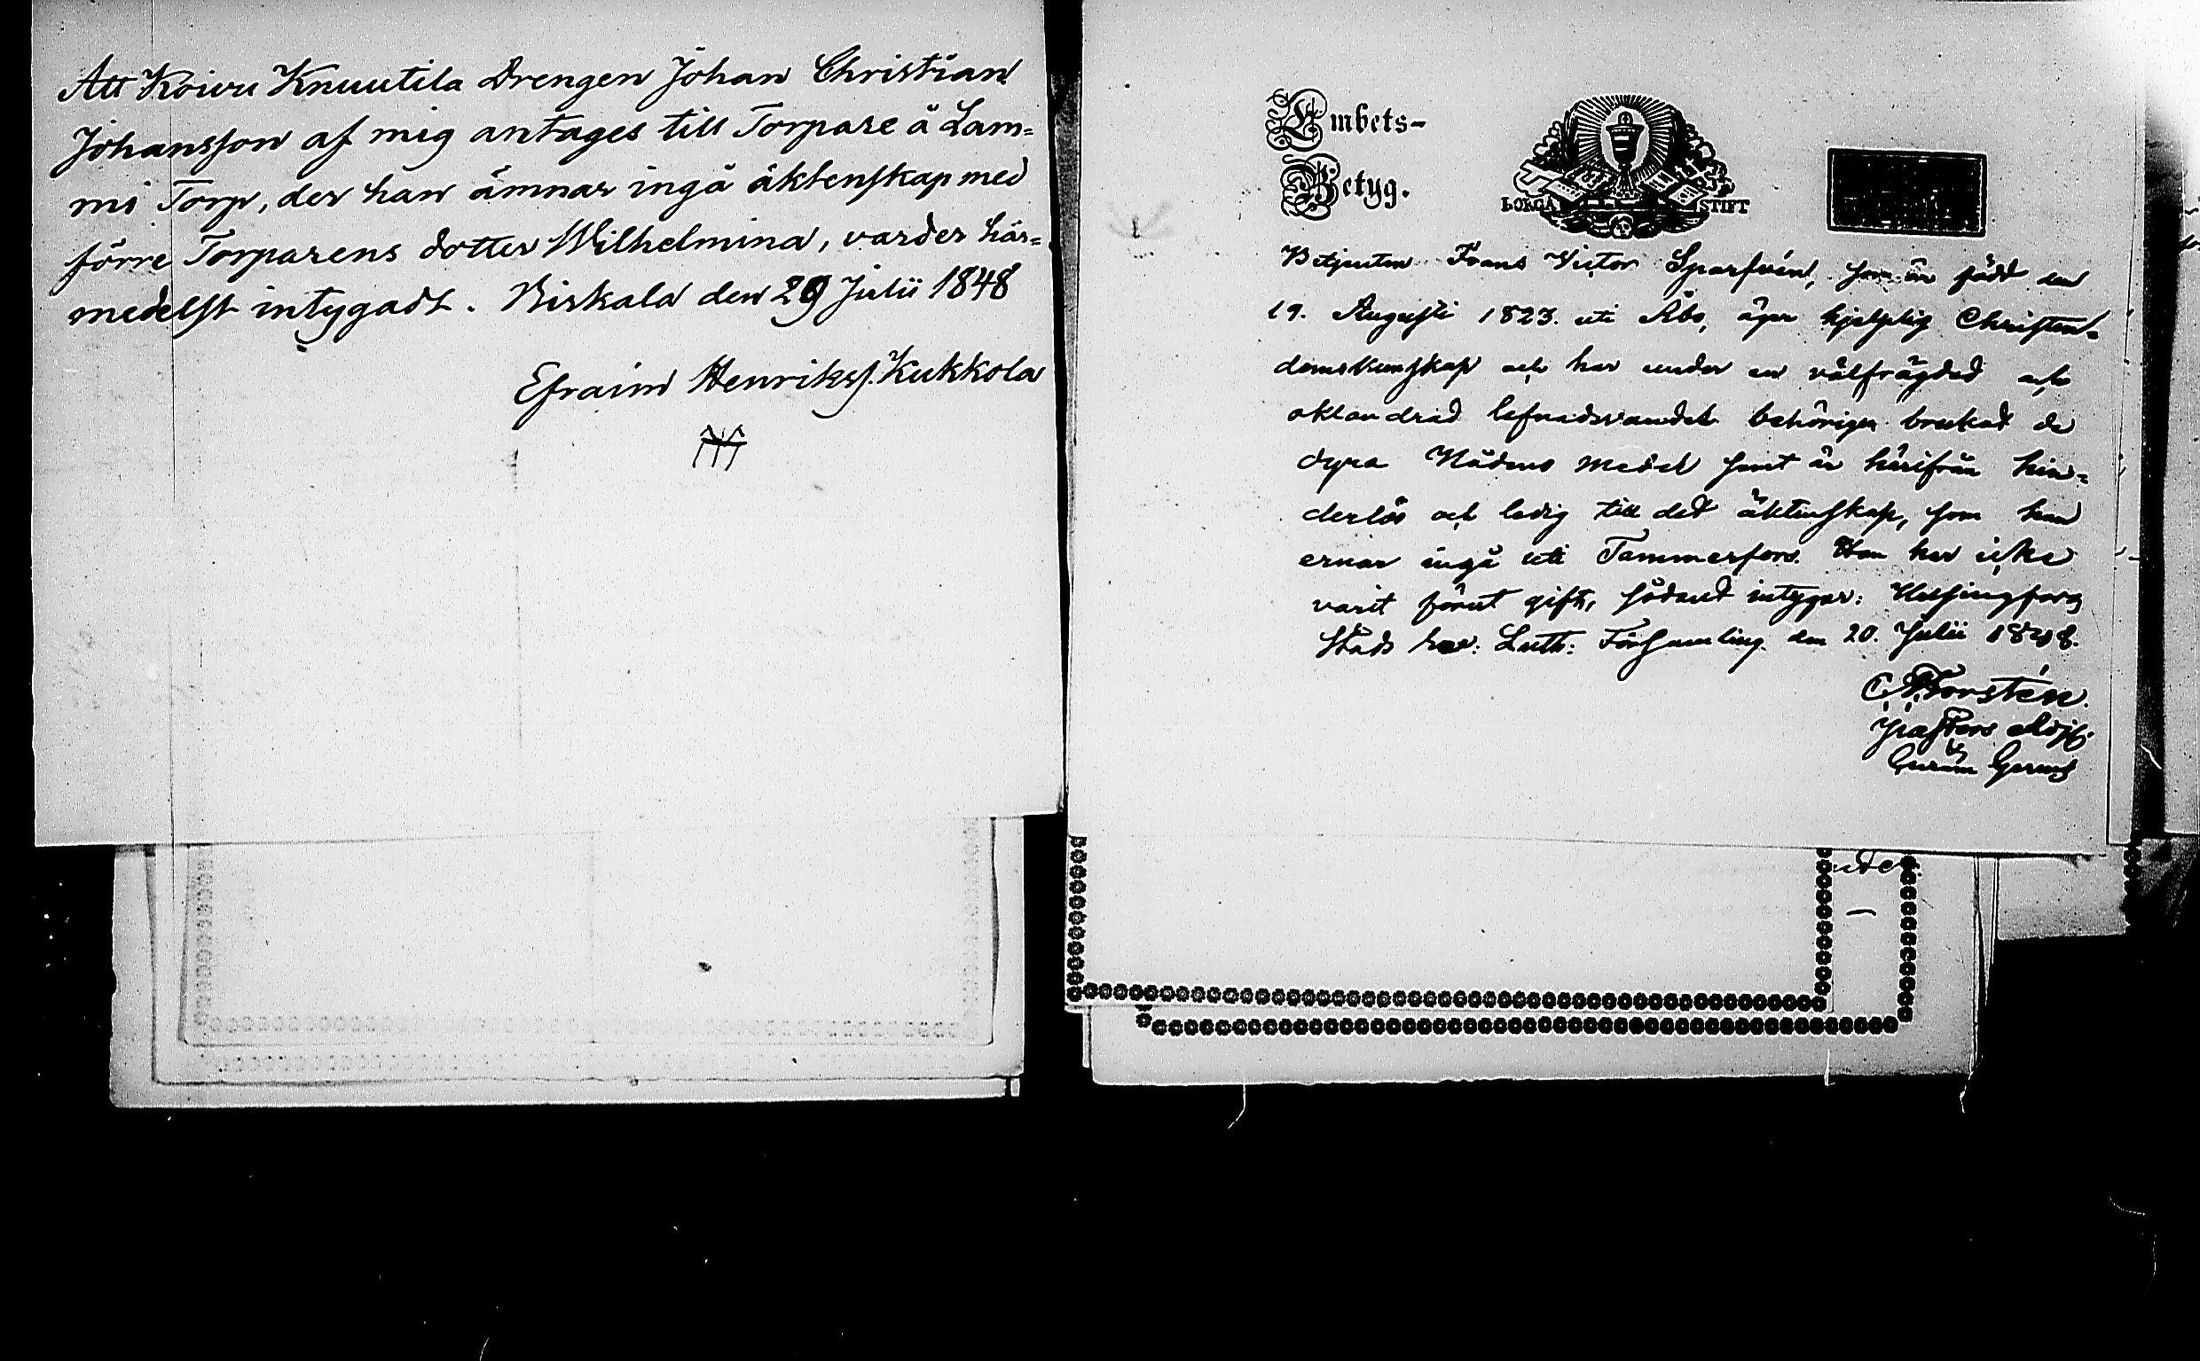 Att Koivu Knuutila Drengen Johan Christian
Johansson af mig antages till Torpare å Lam=
mi Torp, der han ämnar ingå äktenskap med
förre Torparens dotter Wilhelmina, varder här=
medelst intygadt. Birkala den 29 Julii 1848
Efraim Henrikss. Kukkola
Embets-
Betyg.
BORGÅ STIFT
Betjenten Frans Victor Sparfvén, som är född den
19. Augusti 1823. uti Åbo, äger hjelplig Christen=
domskunskap och har under en välfrägdad och
oklandrad lefnadsvandel behörigen brukad de
dyra Nådens medel samt är härifrån hin=
derlös och ledig till det äktenskap, som han
ernar ingå uti Tammerfors. Han har icke
varit förut gift, sådant intygar: Helsingfors
Stads Luth: Församling den 20. Julii 1848.
Forstén.
Pastors Adj: